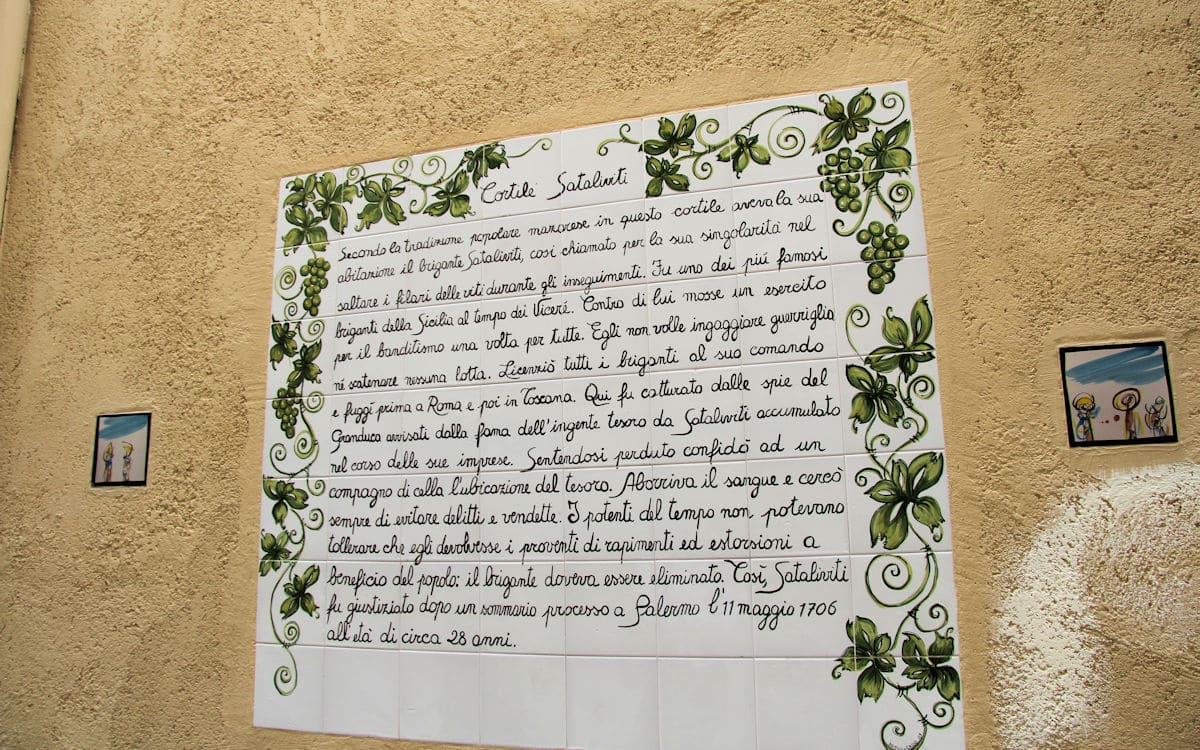 Cortile Sataliviti
Secondo la tradizione popolare manorese in questo cortile aveva la sua
abitazione il brigante Sataliviti, così chiamato per la sua singolarità nel
saltare i filari delle viti durante gli inseguimenti. Fu uno dei più famosi
briganti della Sicilia al tempo dei Viceré. Contro di lui mosse un esercito
per il banditismo una volta per tutte. Egli non volle ingaggiare guerriglia
né scatenare nessuna lotta. Licenziò tutti i briganti al suo comando
e fuggì prima a Roma e poi in Toscana. Qui fu catturato dalle spie del
Granduca avvisati dalla fama dell'ingente tesoro da Sataliviti accumulato
nel corso delle sue imprese. Sentendosi perduto confidò ad un
compagno di cella l'ubicazione del tesoro. Aborriva il sangue e cercò
sempre di evitare delitti e vendette. I potenti del tempo non potevano
tollerare che egli devolvesse i proventi di rapimenti ed estorsioni a
beneficio del popolo: il brigante doveva essere eliminato. Così, Sataliviti
fu giustiziato dopo un sommario processo a Palermo l'11 maggio 1706
all'età di circa 28 anni.